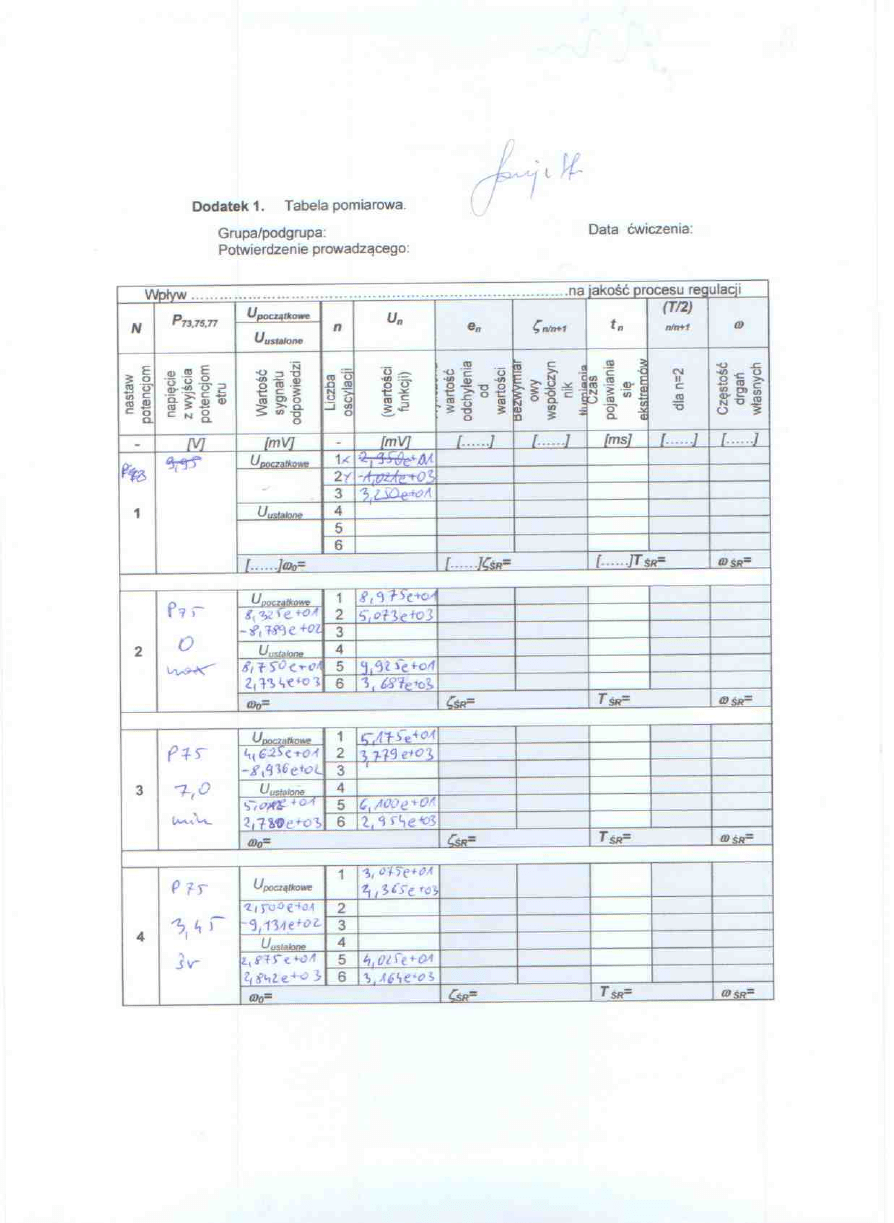 Dodatek 1. Tabela pomiarowa.
Grupa/podgrupa: Data ćwiczenia:
Potwierdzenie prowadzącego:
Wpływ ........................................................................na jakość procesu regulacji
N P73,75,77 Upoczątkowe Uustalone n Un en ζn/n+1 tn (T/2) n/n+1 ω
nastaw potencjom
napięcie z wyjścia potencjom etru
Wartość sygnału odpowiedzi
Liczba oscylacji
(wartości funkcji)
wartość odchylenia od wartości
Bezwymiar owy współczyn nik tłumienia
Czas pojawiania się ekstremów
dla n=2
Częstość drgań własnych
- [V] [mV] - [mV] [......] [......] [ms] [......] [......]
1 9,95
Upoczątkowe 1x 2,950e+01
2y -1,021e+03
3 3,250e+01
Uustalone 4
5
6
[......]ω0= [......]ζŚR= [......]T ŚR= ω ŚR=
2 P75 0 max
Upoczątkowe 1 8,975e+01
8,325e+01 2 5,073e+03
-8,789e+02 3
Uustalone 4
8,750e+01 5 9,925e+01
2,734e+03 6 3,687e+03
ω0= ζŚR= T ŚR= ω ŚR=
3 P75 7,0 min
Upoczątkowe 1 5,175e+01
4,625e+01 2 3,779e+03
-8,936e+02 3
Uustalone 4
5 6,100e+01
2,780e+03 6 2,954e+03
ω0= ζŚR= T ŚR= ω ŚR=
4 P75 3,45 śr
Upoczątkowe 1 3,075e+01
4,365e+03
2,500e+01 2
-9,131e+02 3
Uustalone 4
2,875e+01 5 4,025e+01
2,842e+03 6 3,164e+03
ω0= ζŚR= T ŚR= ω ŚR=